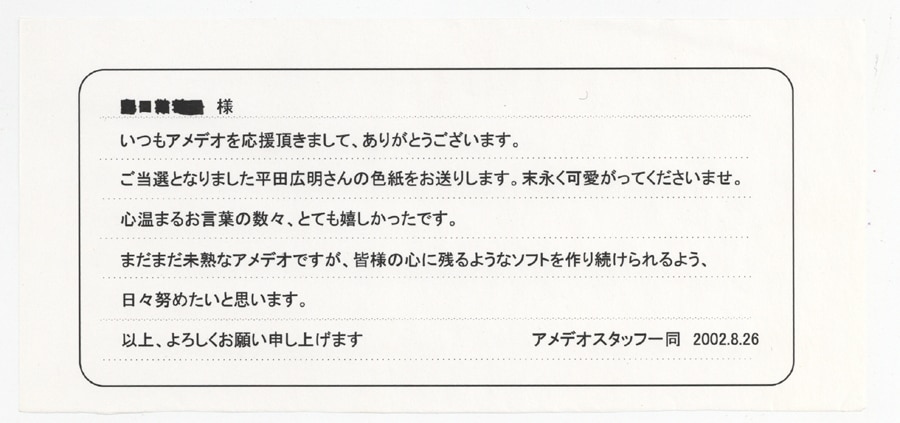 様
いつもアメデオを応援頂きまして、ありがとうございます。
ご当選となりました平田広明さんの色紙をお送りします。末永く可愛がってくださいませ。
心温まるお言葉の数々、とても嬉しかったです。
まだまだ未熟なアメデオですが、皆様の心に残るようなソフトを作り続けられるよう、
日々努めたいと思います。
以上、よろしくお願い申し上げます アメデオスタッフ一同 2002.8.26